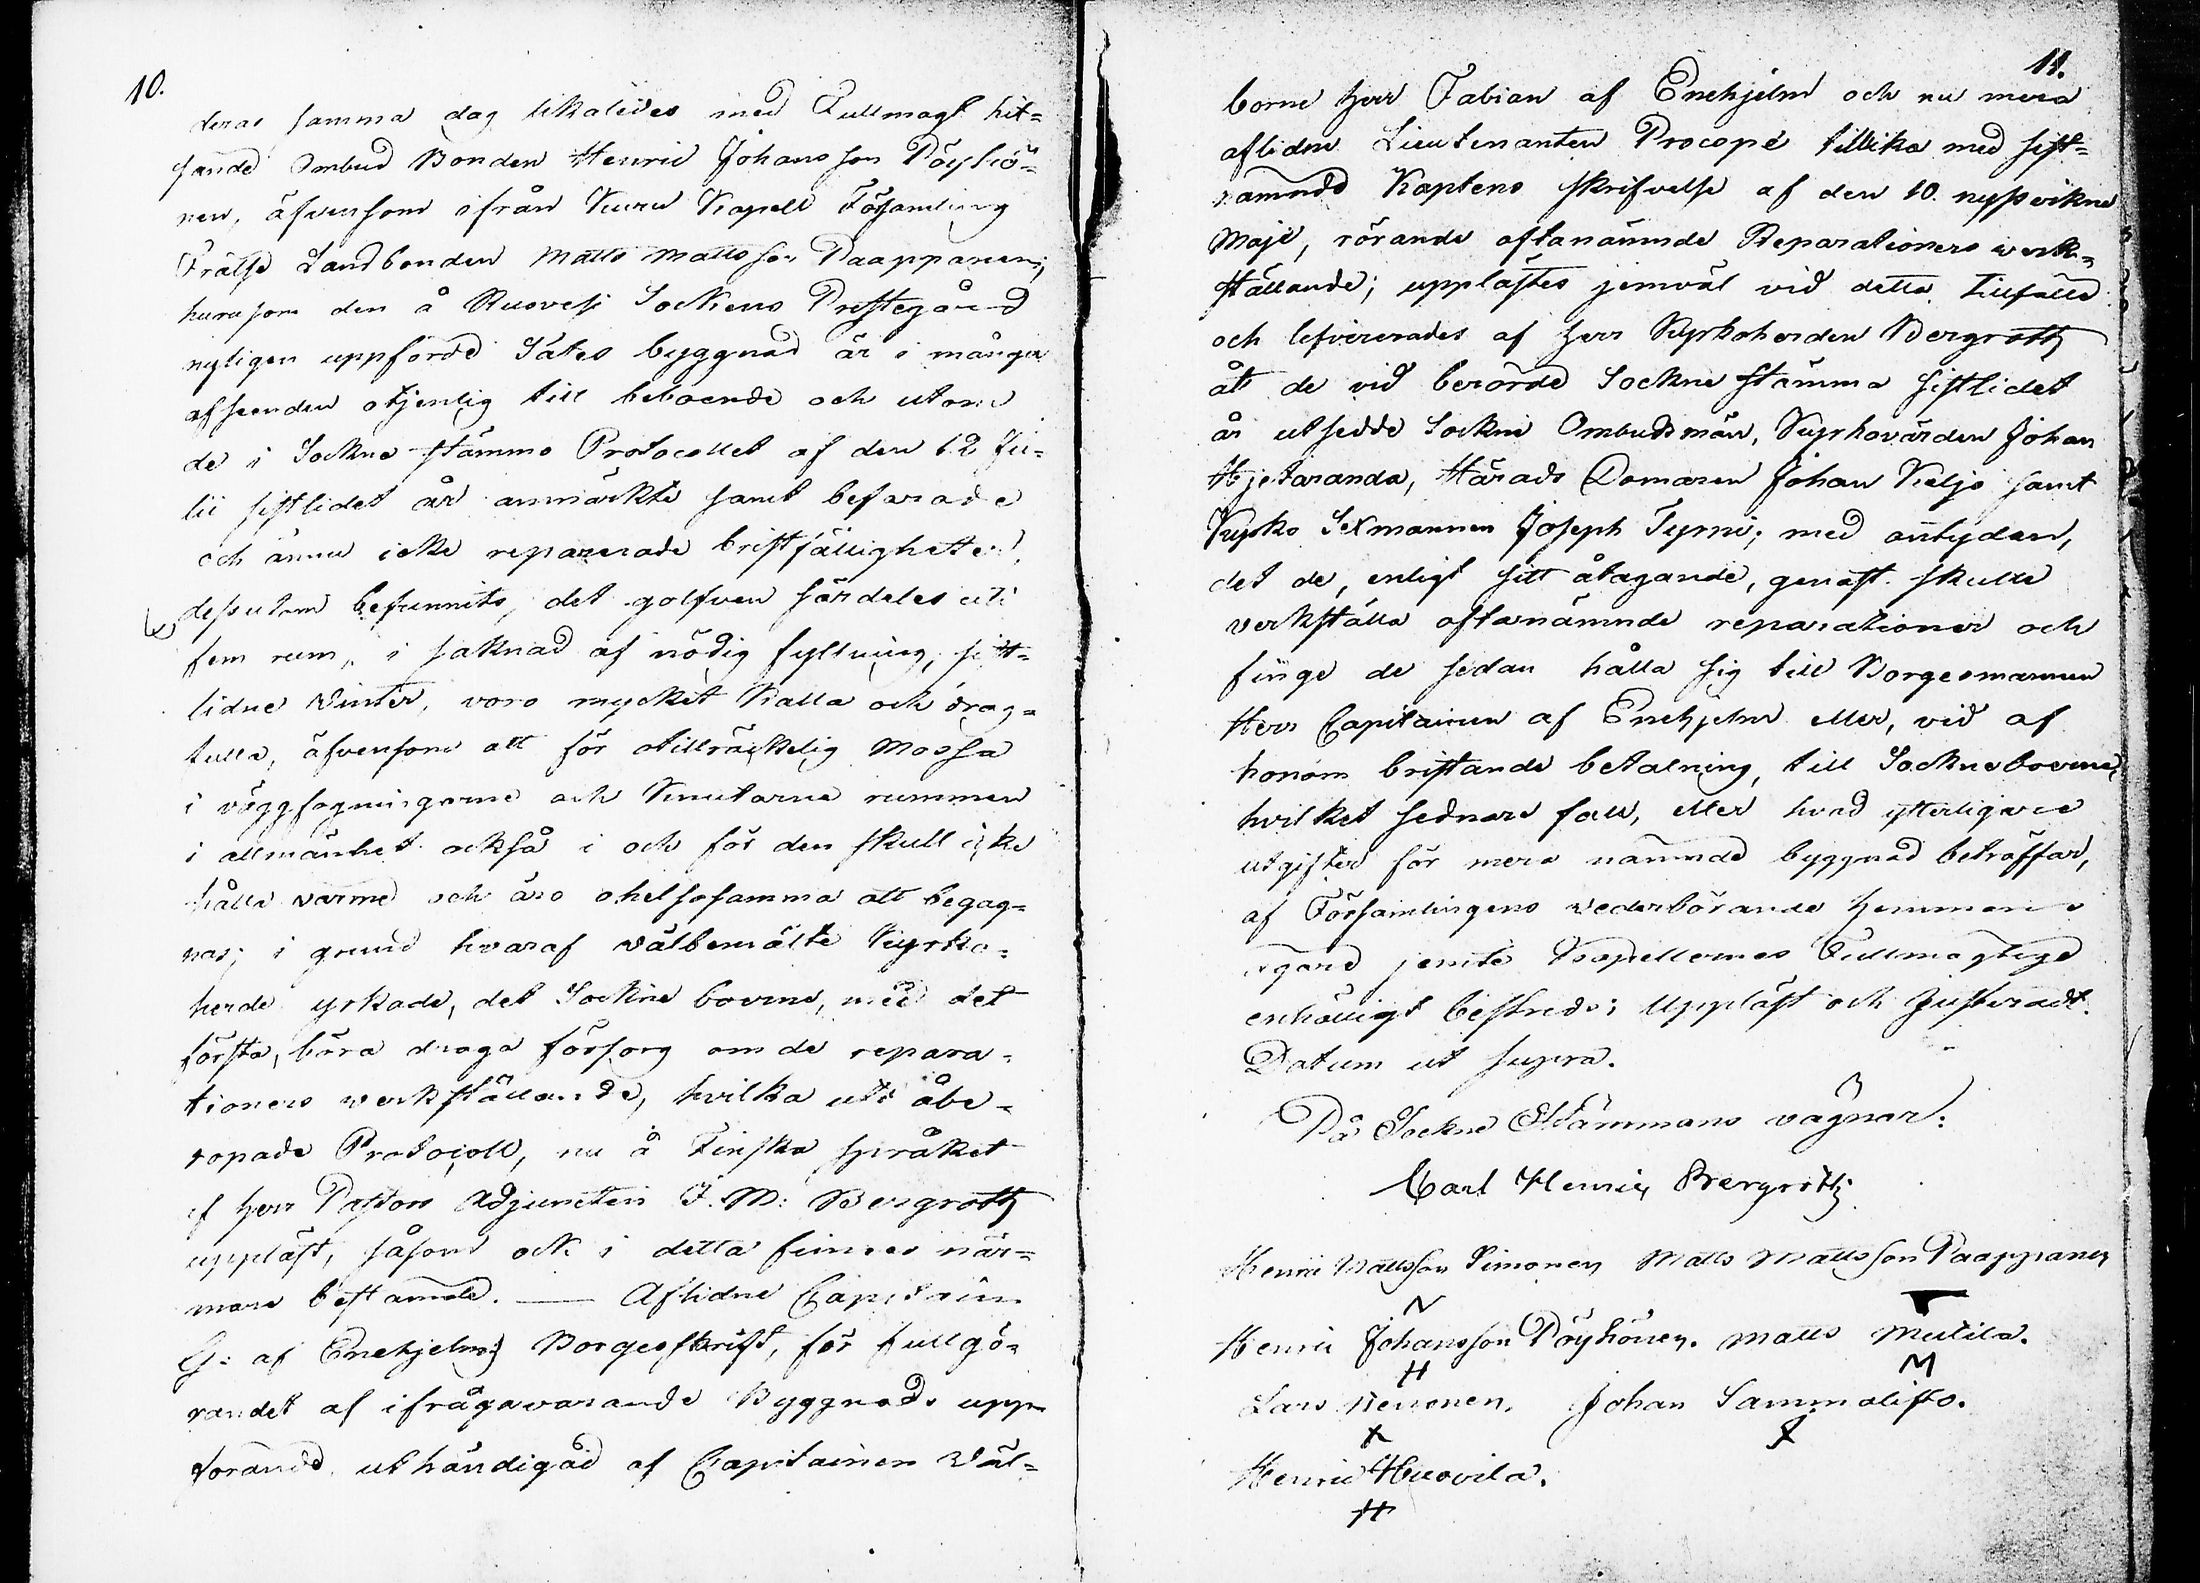 10.
deras samma dag likaledes med Fullmagt hit=
sände Ombud Bonden Henric Johansson Pöyhö=
nen, äfvensom ifrån Kuru Kapell Församling
Frälse Landbonden Matts Mattsson Paappanen;
hurusom den å Ruovesi Sockens Prestegård
nyligen uppförde Sätes byggnad är i många
afseenden otjenlig till beboende och utom
de i Sockne-stämmo Protocollet af den 12 Ju=
lii sistlidet år anmärkte samt befarade
och ännu icke reparerade bristfälligheter,
dessutom befunnits, det golfven särdeles uti
fem rum, i saknad af nödig fyllning, sist=
lidne Winter, voro mycket kalla och drag=
fulla, äfvensom att för otillräckelig Mossa
i väggfogningarne och Knutarne rummen
i allmänhet också i och för den skull icke
hålla varme och äro ohelsosamma att begag=
nas; i grund hvaraf välbemälte Kyrko=
herde yrkade, det Sockne boerne, med det
första, böra draga försorg om de repara=
tioners verkställande, hvilka uti åbe=
ropade Protocoll, nu å Finska språket
af Herr Pastors Adjuncten F. M. Bergroth
uppläst, såsom ock i detta finnes när=
mare bestämde. — Aflidne Capitain
G: af Enehjelms Borgesskrift, för fullgö=
randet af ifrågavarande Byggnads upp
förande, uthändigad af Capitainen Väl=
11.
borne Herr Fabian af Enehjelm och nu mera
aflidne Lieutenanten Procopé tillika med sist=
nämnde Kaptens skrifvelse af den 10. nyssvikne
Maji, rörande oftanämnde Reparationers verk=
ställande; upplästes jemväl vid detta tillfälle
och lefvererades af Herr Kyrkoherden Bergroth
åt de vid berörde Sockne stämma sistlidet
år utsedde Sockne Ombudsmän, Kyrkovärden Johan
Hjetaranda, Härads Domaren Johan Keljo samt
Kyrko Sexmannen Joseph Tyrni; med antydan,
det de, enligt sitt åtagande, genast skulle
verkställa oftanämnde reparationer och
finge de sedan hålla sig till Borgesmannen
Herr Capitainen af Enehjelm eller, vid af
honom bristande betalning, till Sockneboerne,
hvilket sednare fall, eller hvad ytterligare
utgifter för mera nämnde byggnad beträffar,
af Församlingens vederbörande Hemmans
egare jemte Kapellernes Fullmägtige
enhälligt bestreds; Uppläst och Justeradt.
Datum ut supra.
På Sockne Stämmans vägnar:
Carl Henric Bergroth.
Henric Mattsson Simonen Matts Mattsson Paappanen
Henric Johansson Pöyhönen. Matts Mutila.
H M
Lars Nenonen. Johan Sammalisto.
Henric Huovila.
H